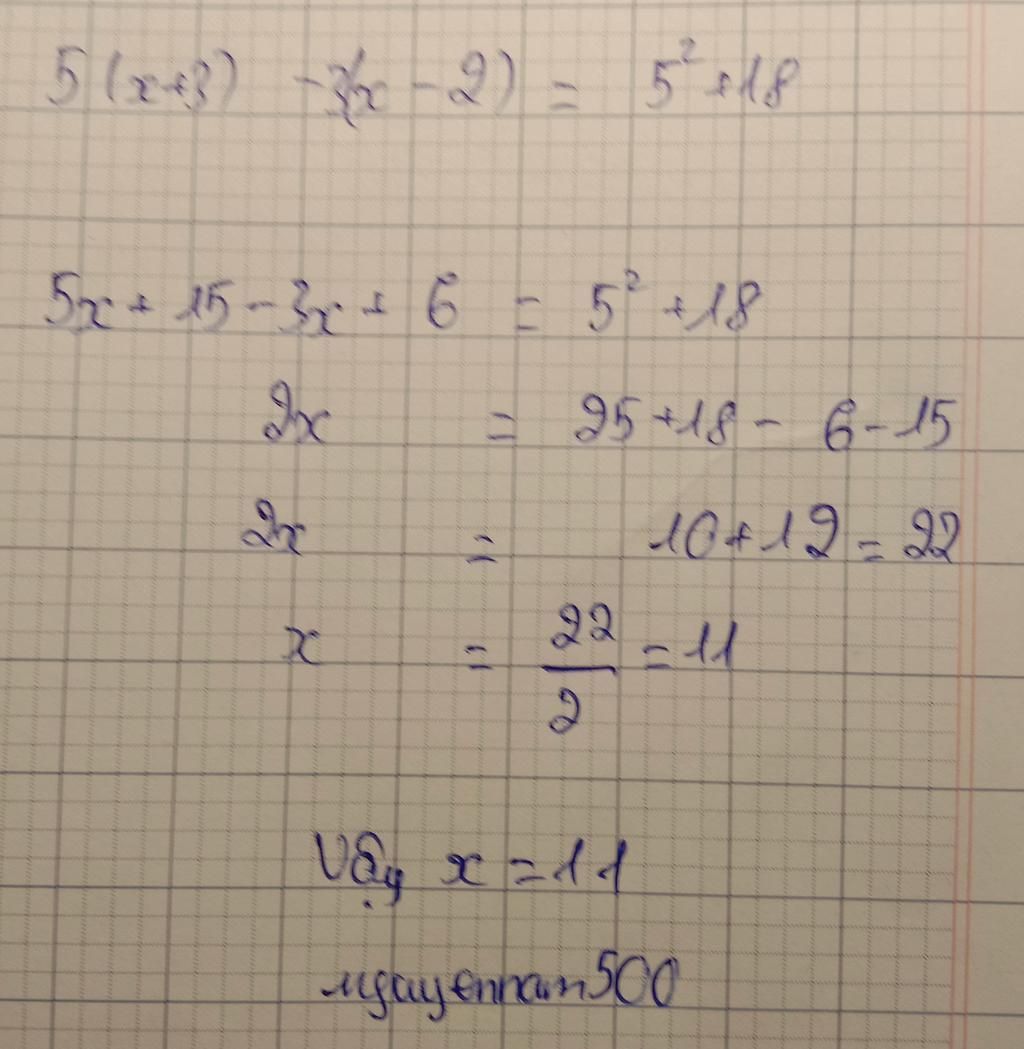 5(x+3) -3(x-2) = 5² +18
5x + 15 - 3x + 6 = 5² +18
2x = 25 +18 - 6 - 15
2x = 10+12 = 22
x = 22/2 = 11
Vậy x = 11
nguyennam500